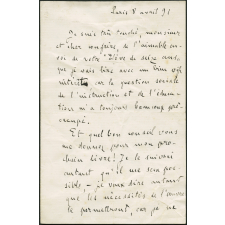 Paris 8 avril 91
Je suis très touché, monsieur
et cher confrère, de l'aimable en-
voi de votre "Livre de seize ans,"
que je vais lire avec un bien vif
intérêt, car la question sociale
de l'instruction et de l'éduca-
tion m'a toujours beaucoup pré-
occupé.
Et quel bon conseil vous
me donnez pour mon pro-
chain livre! Je le suivrai
autant qu'il me sera pos-
sible, – je veux dire autant
que les nécessités de l'œuvre
le permettront, car je ne